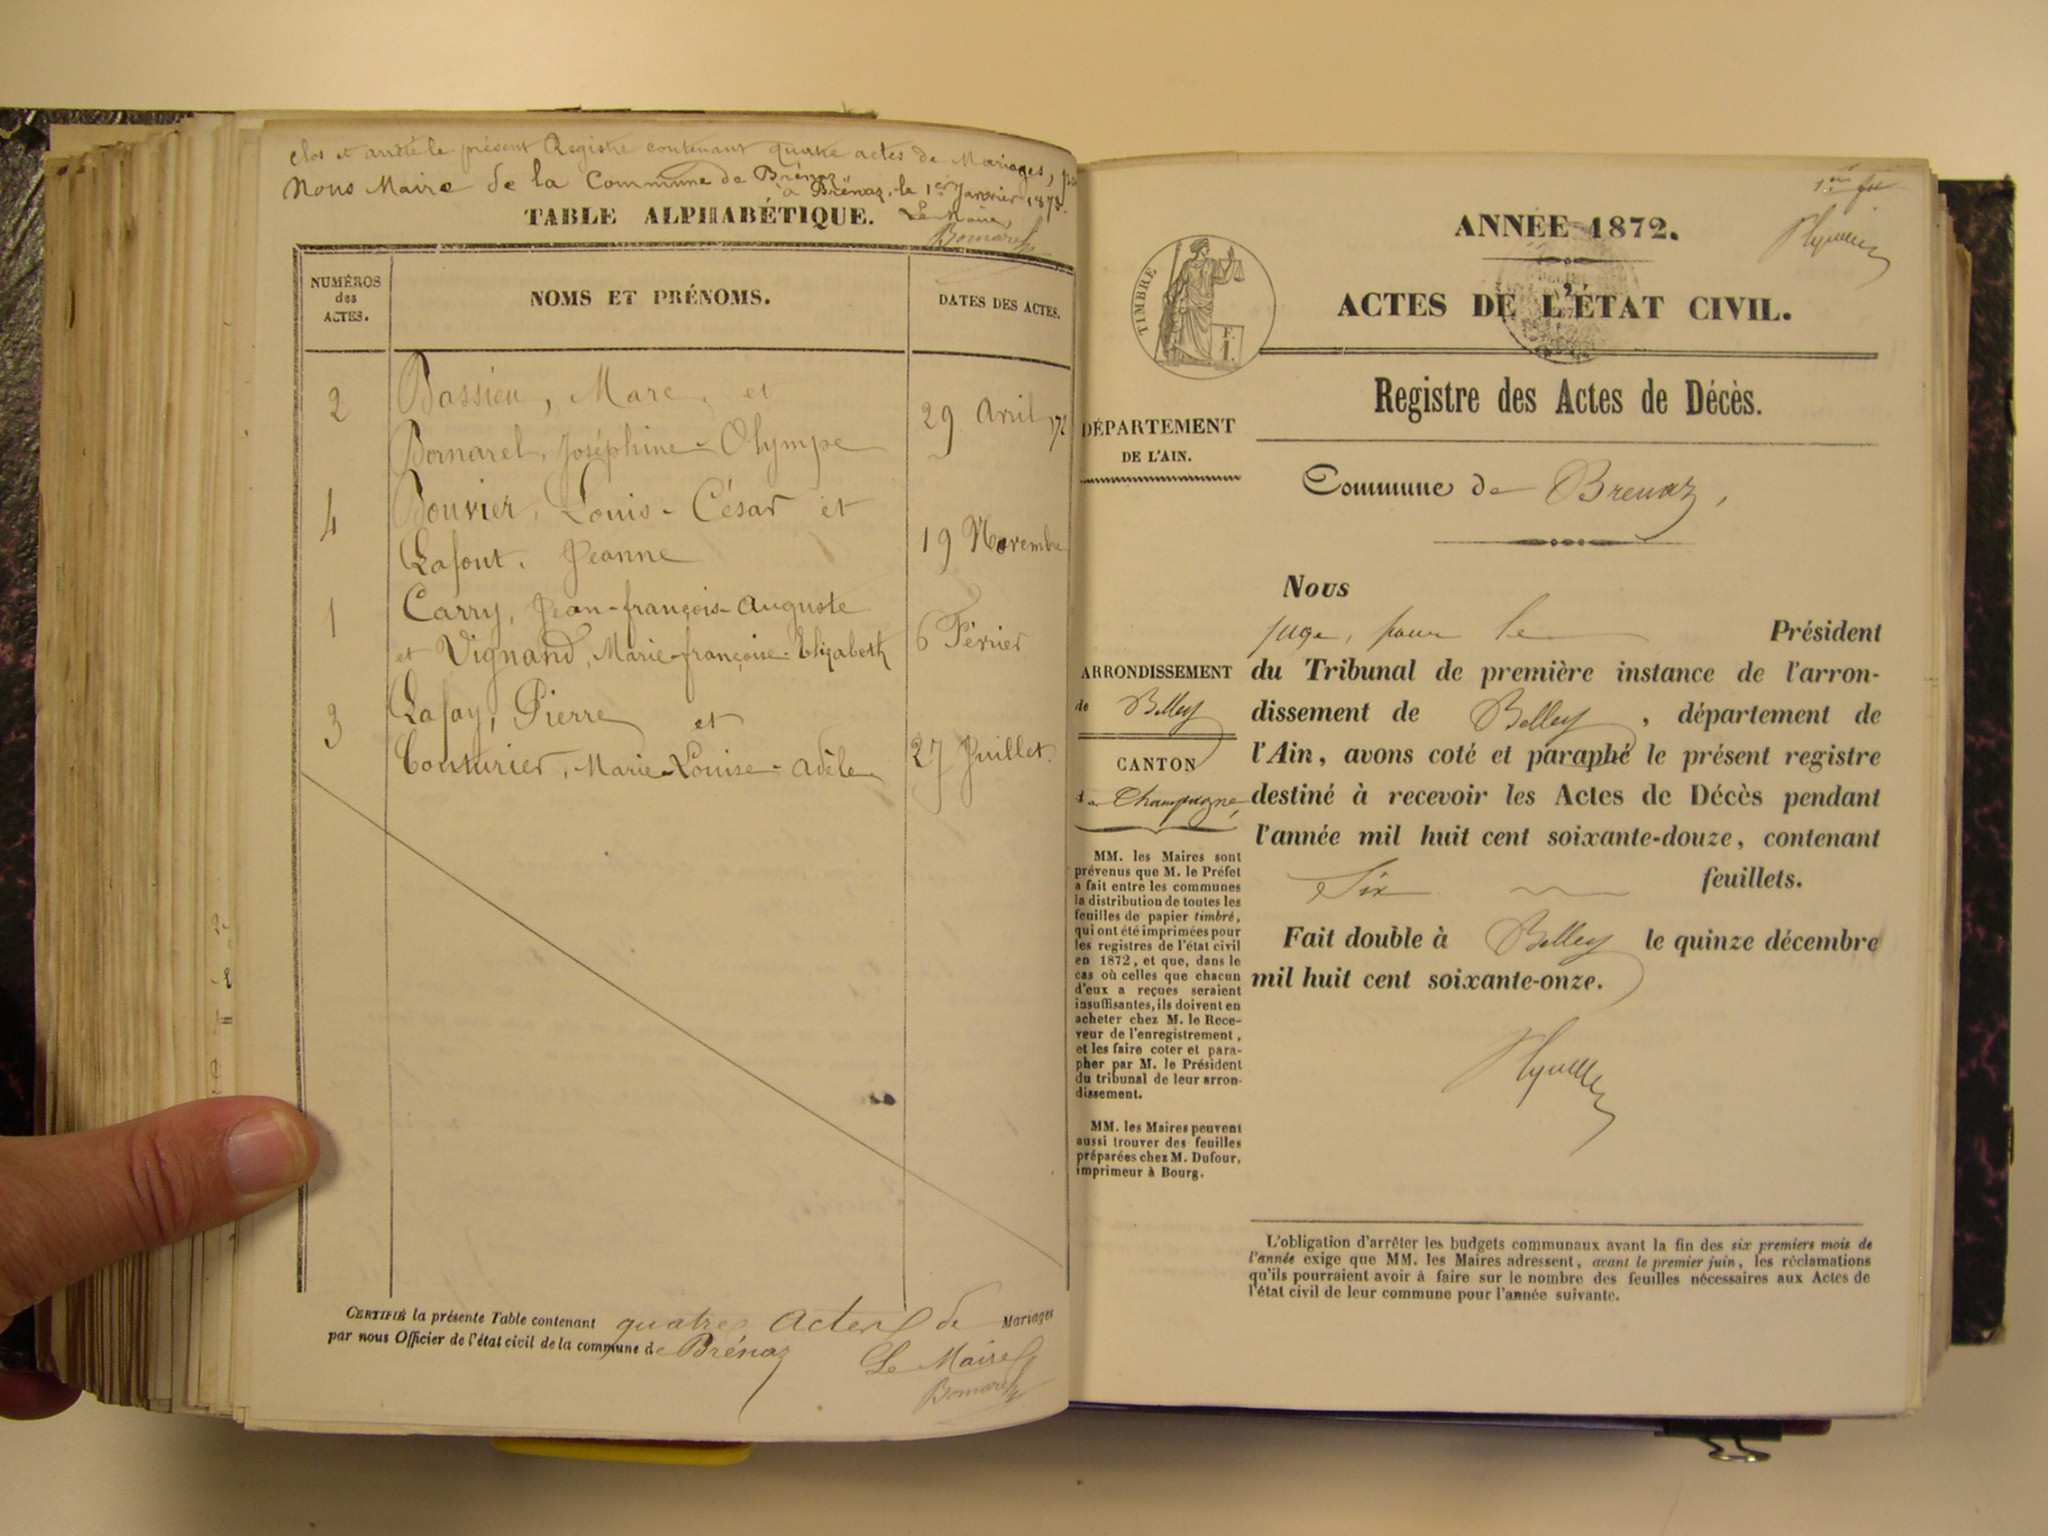 clos et arrêté le présent Registre contenant quatre actes de Mariages, par
Nous Maire de la Commune de Brénaz
à Brénaz, le 1er Janvier 1873.
TABLE ALPHABÉTIQUE.
Le Maire
Bornarel
NUMÉROS
des
ACTES.
NOMS ET PRÉNOMS.
DATES DES ACTES.
2
Bassieu, Marc, et
Bornarel, Joséphine-Olympe
29 Avril 72
4
Bouvier, Louis-César et
Lafont, Jeanne
19 Novembre
1
Carry, Jean-françois-Auguste
et Vignand, Marie-françoise-Elizabeth
6 Février
3
Lafay, Pierre et
Couturier, Marie-Louise-Adèle
27 Juillet.
CERTIFIÉ la présente Table contenant quatre Actes de Mariages
par nous Officier de l'état civil de la commune de Brénaz
Le Maire
Bornarel
1er
ANNÉE 1872.
TIMBRE
ACTES DE L'ÉTAT CIVIL.
Registre des Actes de Décès.
DÉPARTEMENT
DE L'AIN.
Commune de Brenaz,
ARRONDISSEMENT
de Belley
CANTON
de Champagne,
MM. les Maires sont
prévenus que M. le Préfet
a fait entre les communes
la distribution de toutes les
feuilles de papier timbré,
qui ont été imprimées pour
les registres de l'état civil
en 1872, et que, dans le
cas où celles que chacun
d'eux a reçues seraient
insuffisantes, ils doivent en
acheter chez M. le Rece-
veur de l'enregistrement,
et les faire coter et para-
pher par M. le Président
du tribunal de leur arron-
dissement.
MM. les Maires peuvent
aussi trouver des feuilles
préparées chez M. Dufour,
imprimeur à Bourg.
Nous
juge, pour le Président
du Tribunal de première instance de l'arron-
dissement de Belley, département de
l'Ain, avons coté et paraphé le présent registre
destiné à recevoir les Actes de Décès pendant
l'année mil huit cent soixante-douze, contenant
Six feuillets.
Fait double à Belley le quinze décembre
mil huit cent soixante-onze.
L'obligation d'arrêter les budgets communaux avant la fin des six premiers mois de
l'année exige que MM. les Maires adressent, avant le premier juin, les réclamations
qu'ils pourraient avoir à faire sur le nombre des feuilles nécessaires aux Actes de
l'état civil de leur commune pour l'année suivante.